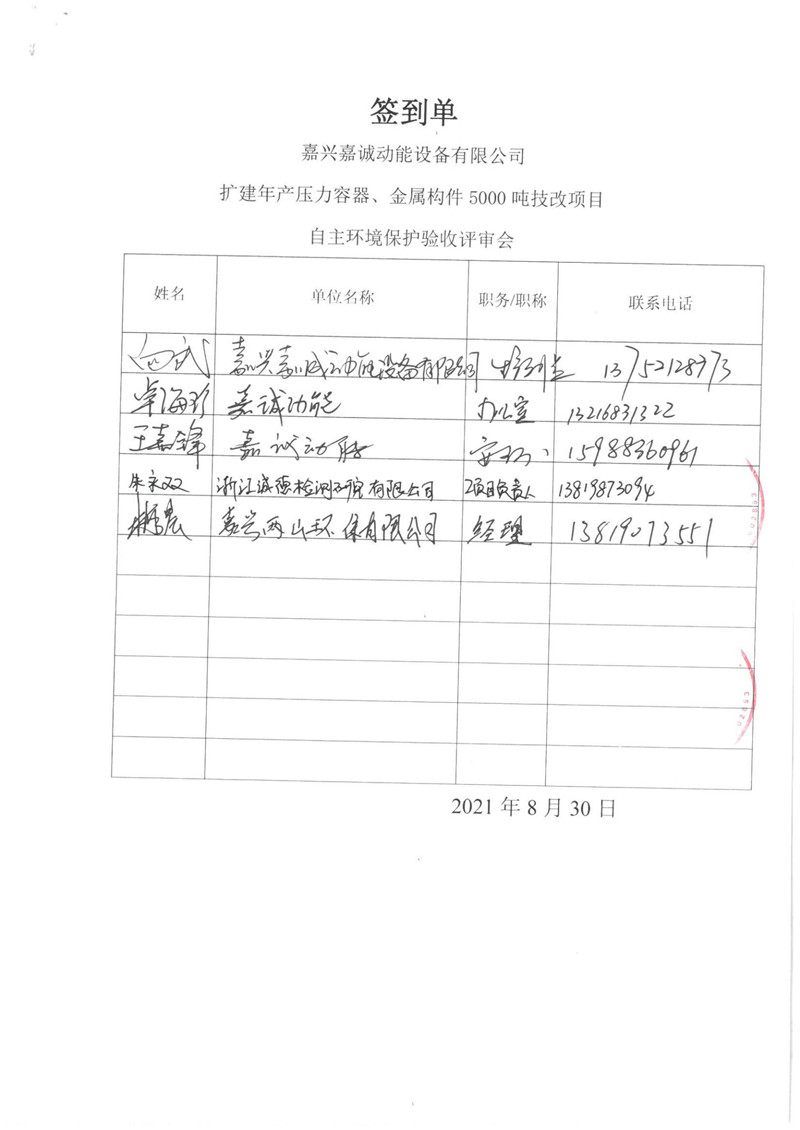 签到单
嘉兴嘉诚动能设备有限公司
扩建年产压力容器、金属构件 5000 吨技改项目
自主环境保护验收评审会
姓名 单位名称 职务/职称 联系电话
向武 嘉兴嘉诚动能设备有限公司 13752128773
卓海珍 嘉诚动能 办公室 13216831322
王嘉锋 嘉诚动能 安环 15988360961
朱宋双 浙江诚德检测研究有限公司 项目负责人 13819873094
嘉兴两山环保有限公司 经理 13819073551
2021 年 8 月 30 日